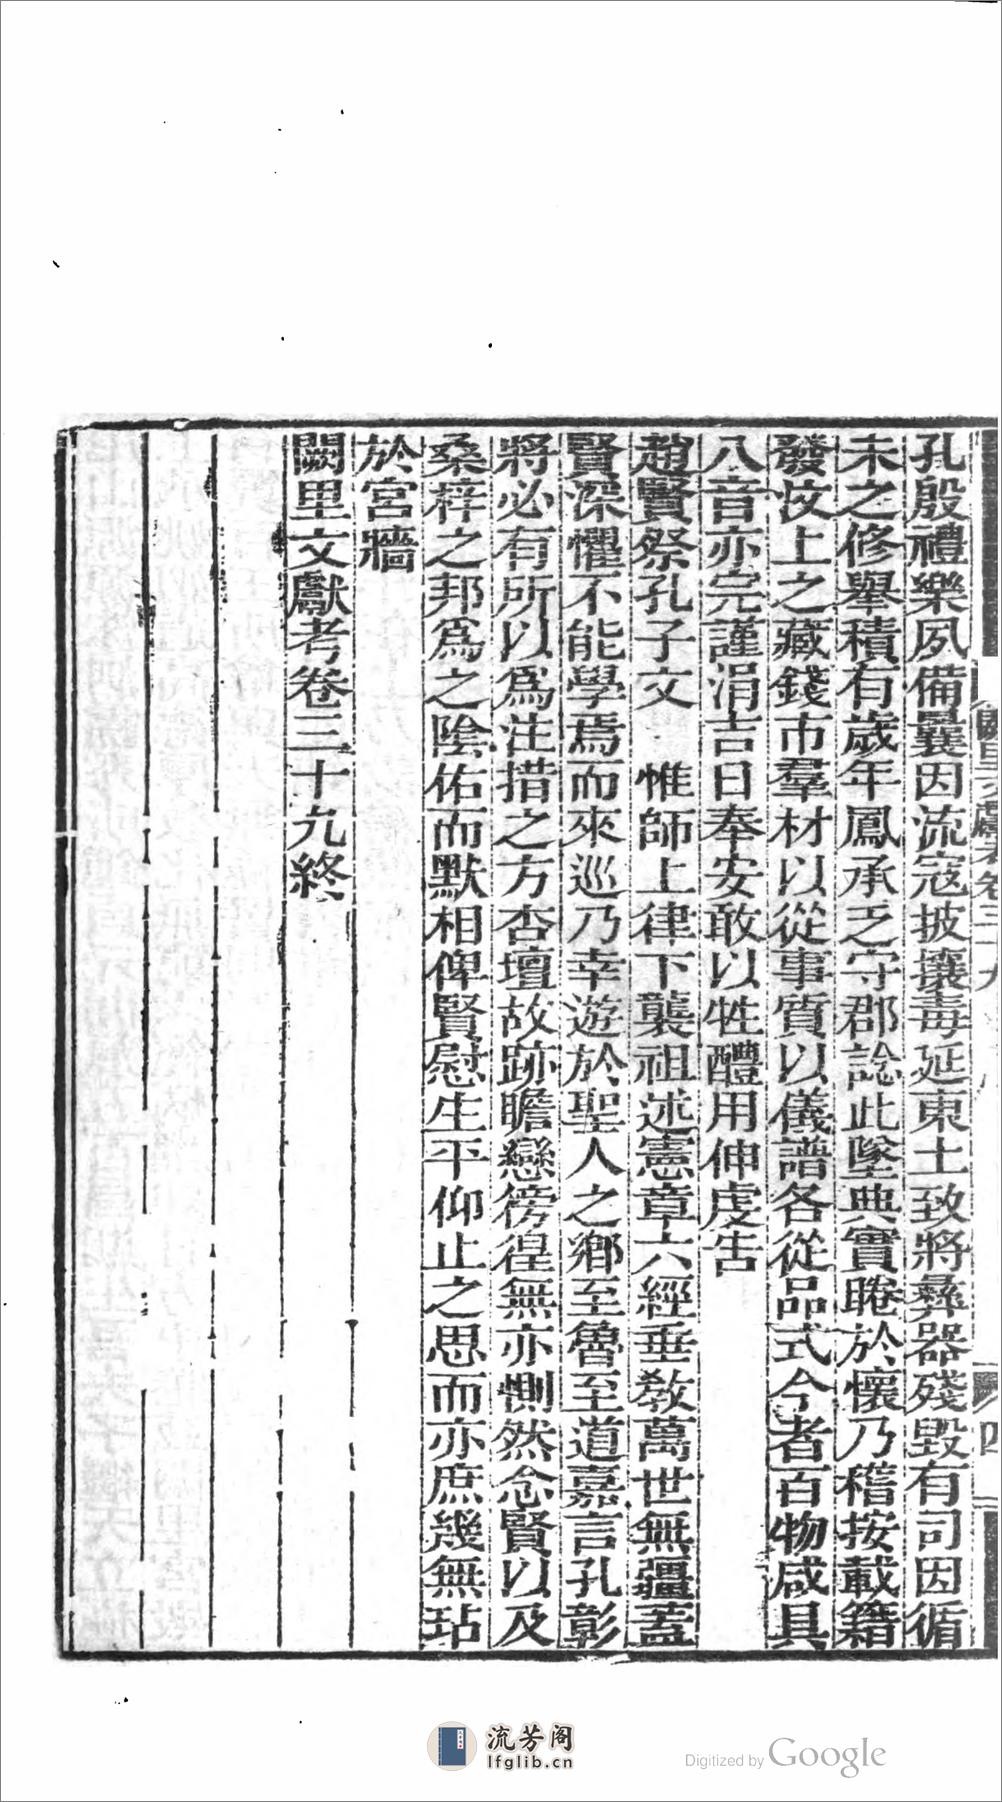 孔殷禮樂夙備曩因流寇披攘毒延東土致將彝器殘毀有司因循
未之修舉積有歲年鳳承乏守郡諗此墜典實睠於懷乃稽按載籍
發汶上之藏錢市羣材以從事質以儀譜各從品式今者百物咸具
八音亦完謹涓吉日奉安敢以牲醴用伸虔告
趙賢祭孔子文　惟師上律下襲祖述憲章六經垂教萬世無疆蓋
賢深懼不能學焉而來巡乃幸遊於聖人之鄉至魯至道嘉言孔彰
將必有所以為注措之方杏壇故跡瞻戀徬徨無亦惻然念賢以及
桑梓之邦為之陰佑而默相俾賢慰生平仰止之思而亦庶幾無玷
於宮牆
闕里文獻考卷三十九終
闕里文獻考卷三十九
四
流芳阁
lfglib.cn
Digitized by Google